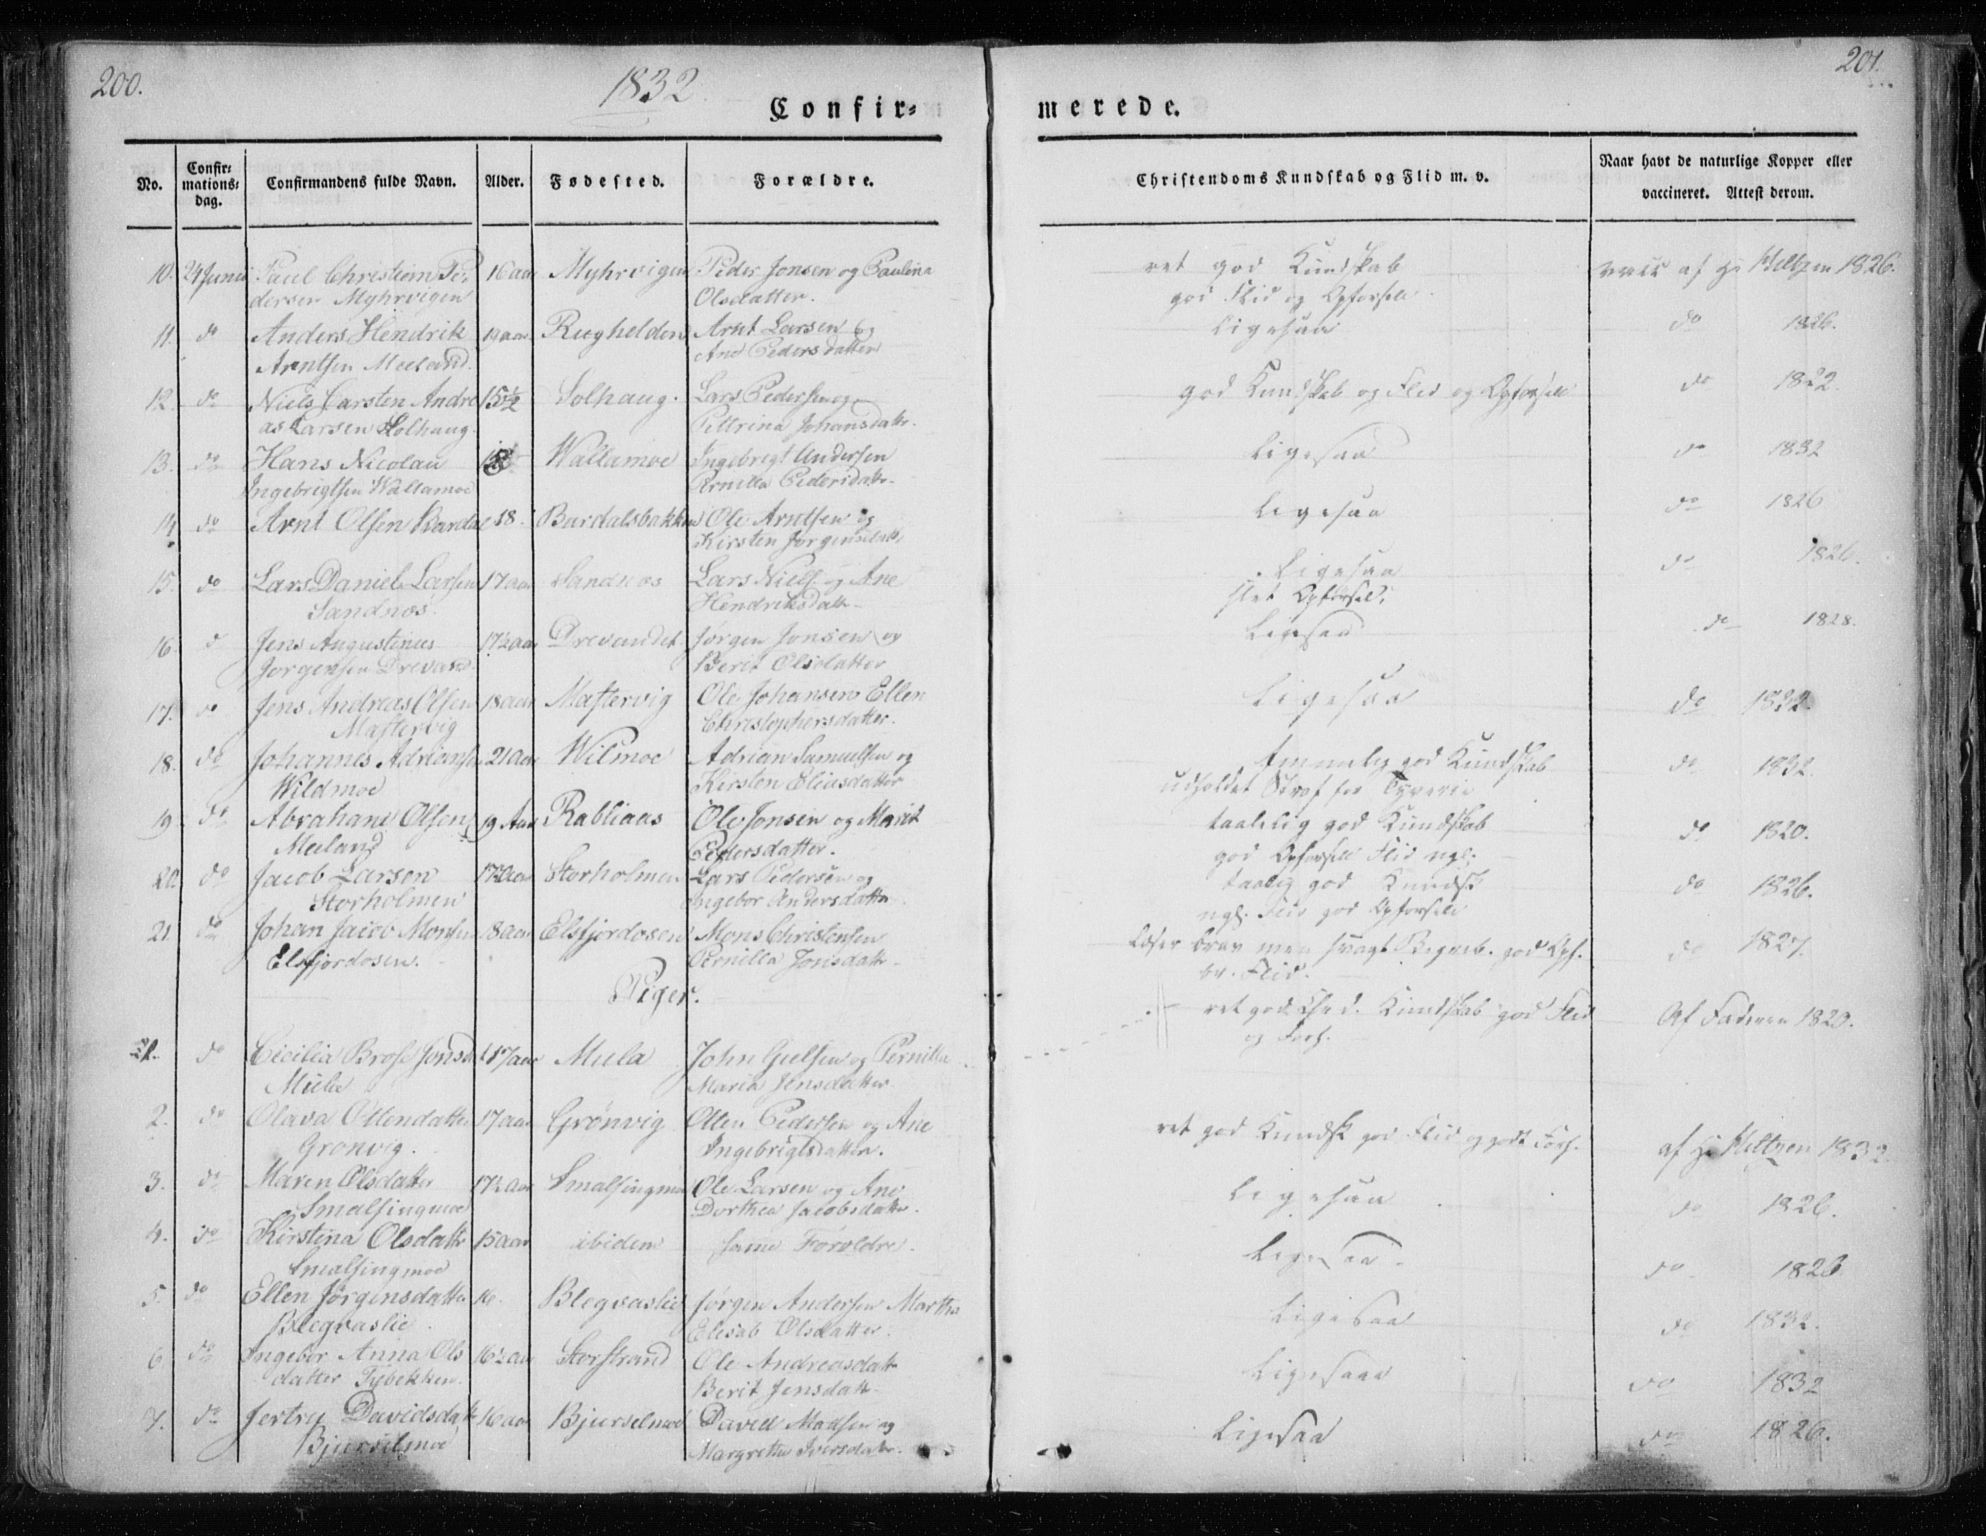 200.
1832
201.
Confir=
merede.
No.
Confir=
mations=
dag.
Confirmandens fulde Navn.
Alder.
Fødested.
Forældre.
Christendoms Kundskab og Flid m. v.
Naar havt de naturlige Kopper eller
vaccineret. Attest derom.
10. 24 Juni Paul Christian Pe= 16 aar Myhrvigen Peder Jonsen og Paulina ret god Kundskab af Hr 1826.
dersen Myhrvigen Olsdatter. god Flid og Opførsel.
11. do Anders Hendrik 19 aar Rughelden Arnt Larsen og Ligesaa do 1826.
Arntsen Meeland. Ane Pedersdatter
12. do Niels Carsten Andre 15½ Solhaug. Lars Pedersen og god Kundskab og Flid og Opførsel do 1822.
as Larsen Solhaug. Pettrina Johansdatr.
13. do Hans Nicolau Wallamoe Ingebrigt Andersen Ligesaa do 1832
Ingebrigtsen Wallamoe Pernilla Pedersdatr.
14. do Arnt Olsen Bardal 18. Bardalsbakken Ole Arntsen og Ligesaa do 1826
Kirsten Jørgensdatr.
15. do Lars Daniel Larsen 17 aar Sandnæs Lars Niels. og Ane Ligesaa do 1826.
Sandnæs. Hendriksdatr. slet Opførsel.
16. do Jens Augustinus 17½ aar Drevandet Jørgen Jonsen og Ligesaa do 1828.
Jørgensen Drevand. Berit Olsdatter
17. do Jens Andreas Olsen 18 aar Mastervig Ole Johansen Ellen Ligesaa do 1822.
Mastervig Christophersdatter.
18. do Johannes Adriansen 21 aar Wilmoe Adrian Samuelsen og temmelig god Kundskab do 1832.
Wildmoe Kirsten Eliasdatter udholdet Straf for Tyverie
19. do Abraham Olsen 19 Aar Rabliaas Ole Jonsen og Marit taalelig god Kundskab do 1820.
Meeland Pedersdatter. god Opførsel Flid ngl.
20. do Jacob Larsen 17½ aar Storholmen Lars Pedersen og taalig god Kundsk do 1826.
Storholmen Ingebor Andersdatter ngl. Flid god Opførsel
21. do Johan Jacob Monsen 18 aar Elsfjordosen Mons Christensen Læser brav men svagt Begreb. god Opf. do 1827.
Elsfjordosen. Pernilla Jonsdatr. Flid.
Piger.
1. do Cicilia Brose Jonsd 17 aar Mula John Gielsen og Pernilla ret god Chr.d. Kundskab god Flid Af Faderen 1820.
Mula Maria Jensdatter og Forh.
2. do Olava Ottensdatter 17 aar Grønvig Otten Pedersen og Ane ret god Kundsk god Flid og godt Forh. af Hr 1832
Grønvig. Ingebrigtsdatter.
3. do Maren Olsdatter 17½ aar Smalsingmoe Ole Larsen og Ane Ligesaa do 1826.
Smalsingmoe Dorthea Jacobsdatr.
4. do Kirstina Olsdatr 15 aar ibidem samme Forældre. Ligesaa. do 1826
Smalsingmoe
5. do Ellen Jørgensdatter 16. Blegvaslie Jørgen Andersen Martha Ligesaa do 1832.
Blegvaslie. Elisab Olsdatter.
6. do Ingebor Anna Ols 16½ aar Storstrand Ole Andreasdatr Ligesaa do 1832
datter Tybekken. Berit Jensdatr.
7. do Jertru Davidsdatr 16 aar Bjurselmoe David Madsen og Ligesaa do 1826.
Bjurselmoe Margretha Iversdatr.